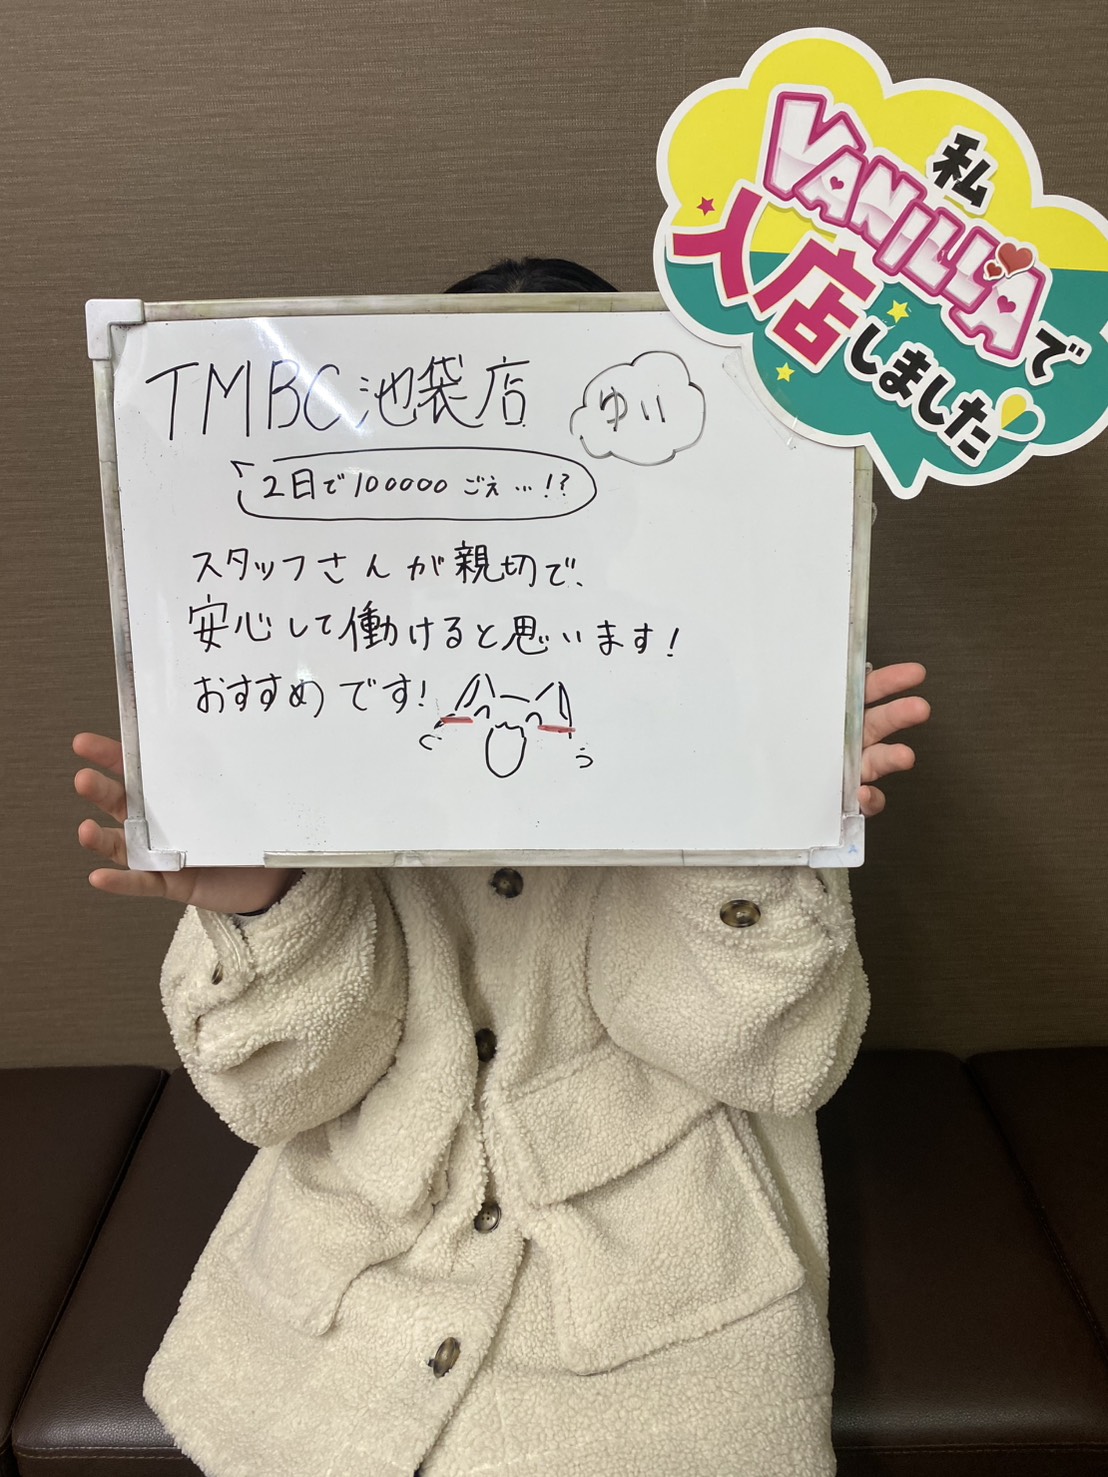 私
VANILLAで
入店しました
TMBC池袋店
ゆい
2日で100000ごえ…!?
スタッフさんが親切で、
安心して働けると思います!
おすすめです!